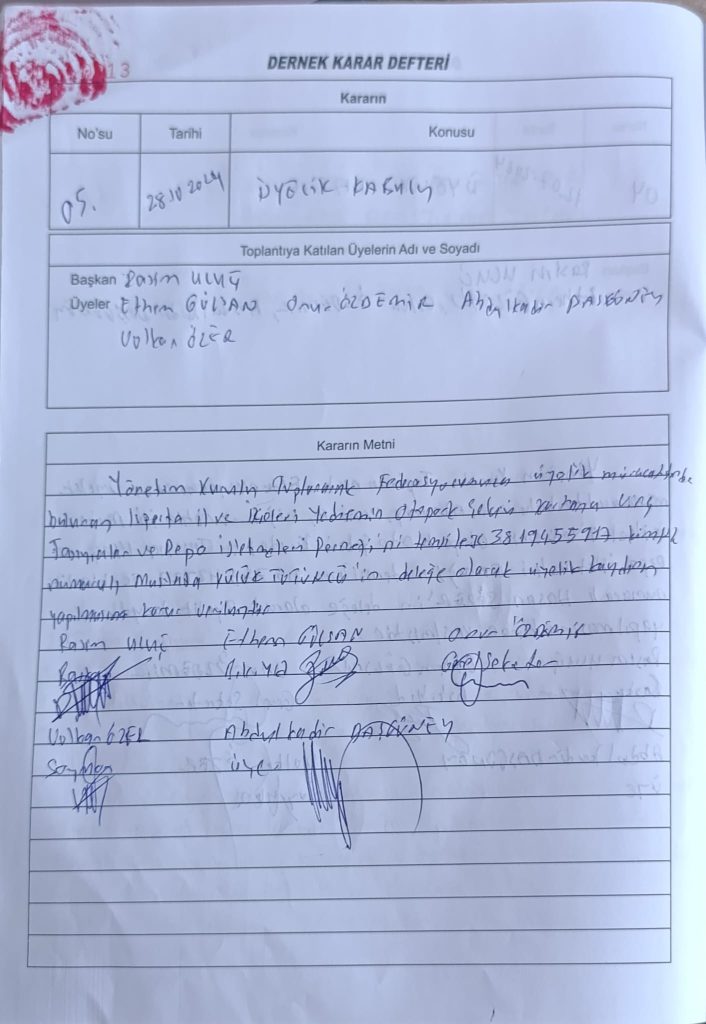 13
DERNEK KARAR DEFTERİ
Kararın
No'su Tarihi Konusu
05. 28.10.2024 ÜYELİK KABULÜ
Toplantıya Katılan Üyelerin Adı ve Soyadı
Başkan Rasim ULUÇ
Üyeler Ethem GÜLSAN Onur ÖZDEMİR Abdulkadir DAŞGÜNEY
Volkan ÖZER
Kararın Metni
Yönetim Kurulu Toplanarak Federasyonumuza üyelik müracaatında
bulunan il ve İlçeleri Yediemin Otopark Çekici Kurtarıcı Vinç
ve Depo İşletmeleri Derneği'ni temsilen 38194559 kimlik
numaralı Mustafa TÜTÜNCÜ'in delege olarak üyelik kaydının
yapılmasına karar verilmiştir
Rasim ULUÇ Ethem GÜLSAN Onur ÖZDEMİR
Genel Sekreter
Volkan ÖZEL Abdulkadir DAŞGÜNEY
Sayman üye